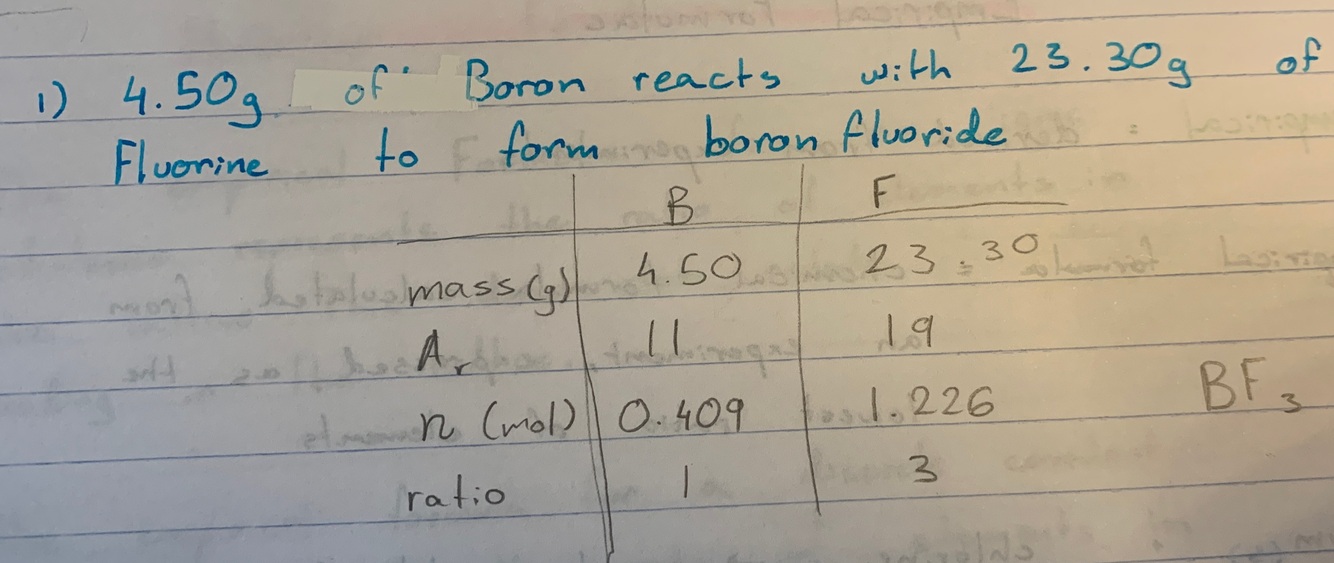 1) 4.50g of Boron reacts with 23.30g of
Fluorine to form boron fluoride
B F
mass (g) 4.50 23.30
Ar 11 19
n (mol) 0.409 1.226 BF3
ratio 1 3